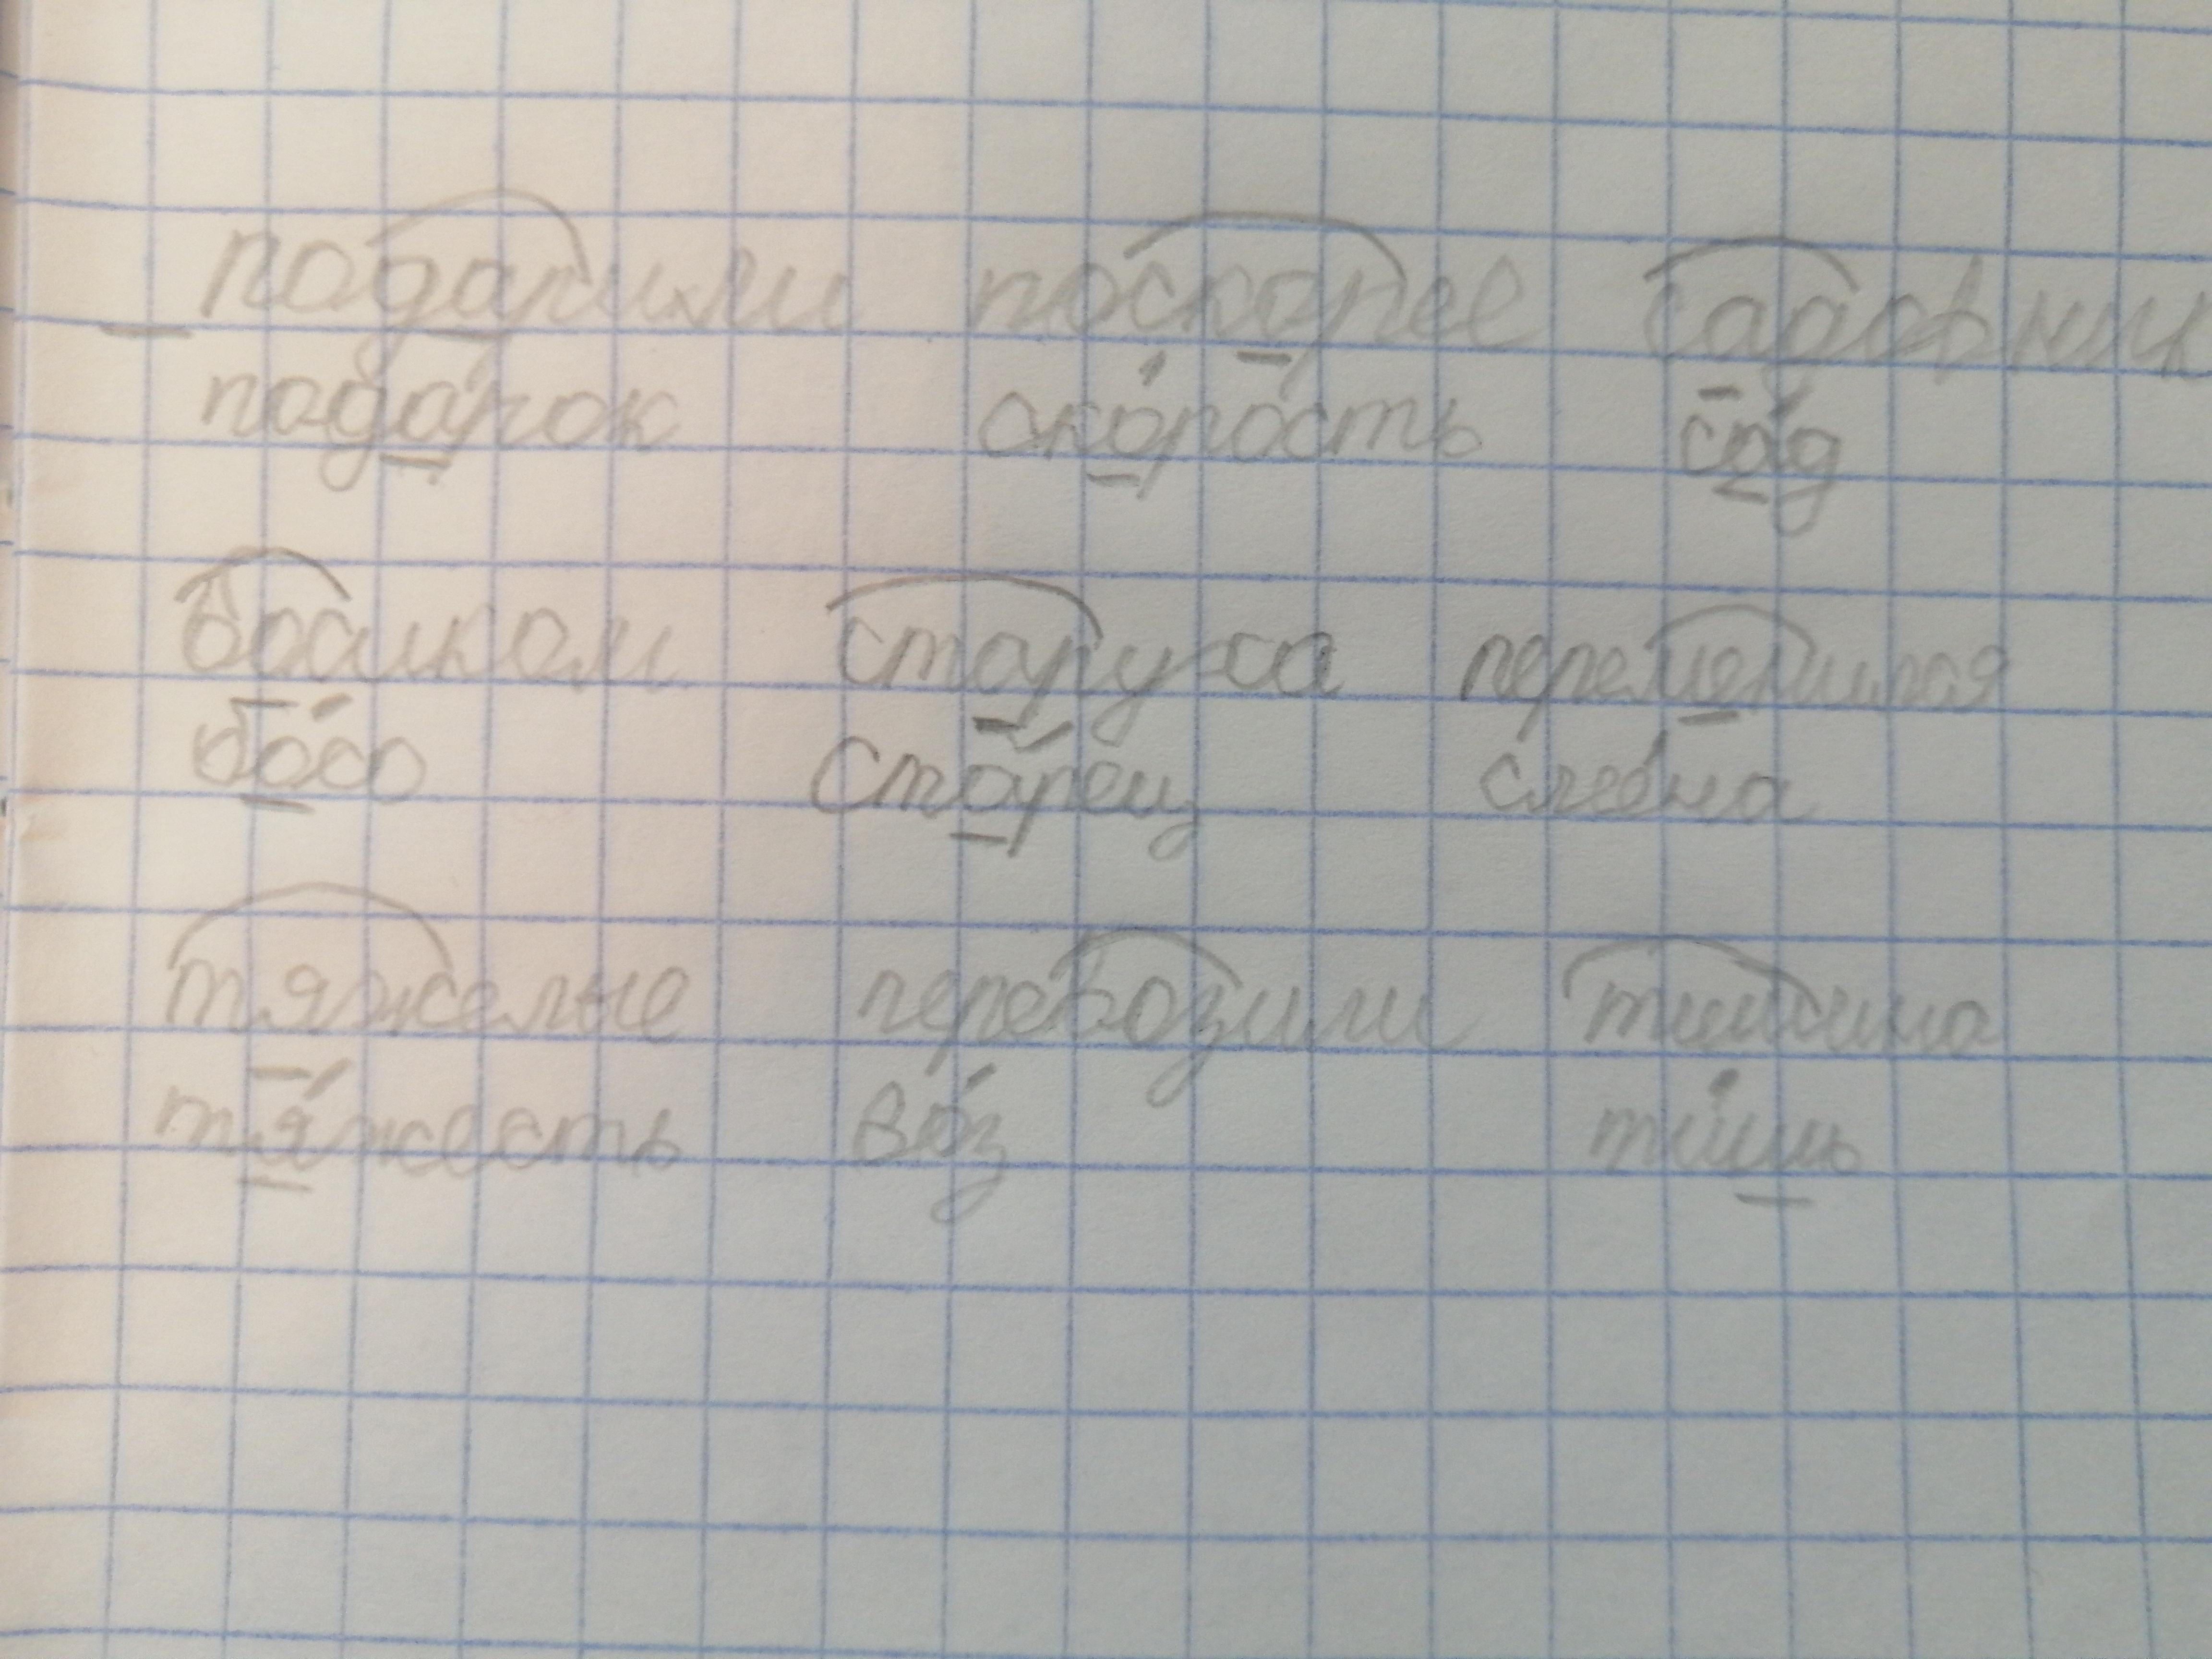 подарили поскорее садовник
пода́рок ско́рость са́д
босиком старуха
бо́со ста́рец сме́на
тяжелые перевозили тишина
тя́жесть во́з ти́шь